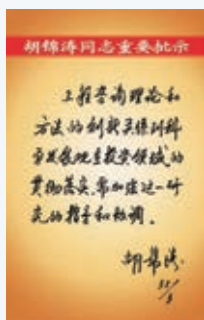 胡锦涛同志重要批示
工程咨询理论和
方法的创新关系到科
学发展观在投资领域的
贯彻落实,需加强这一研
究的指导和协调。
胡锦涛